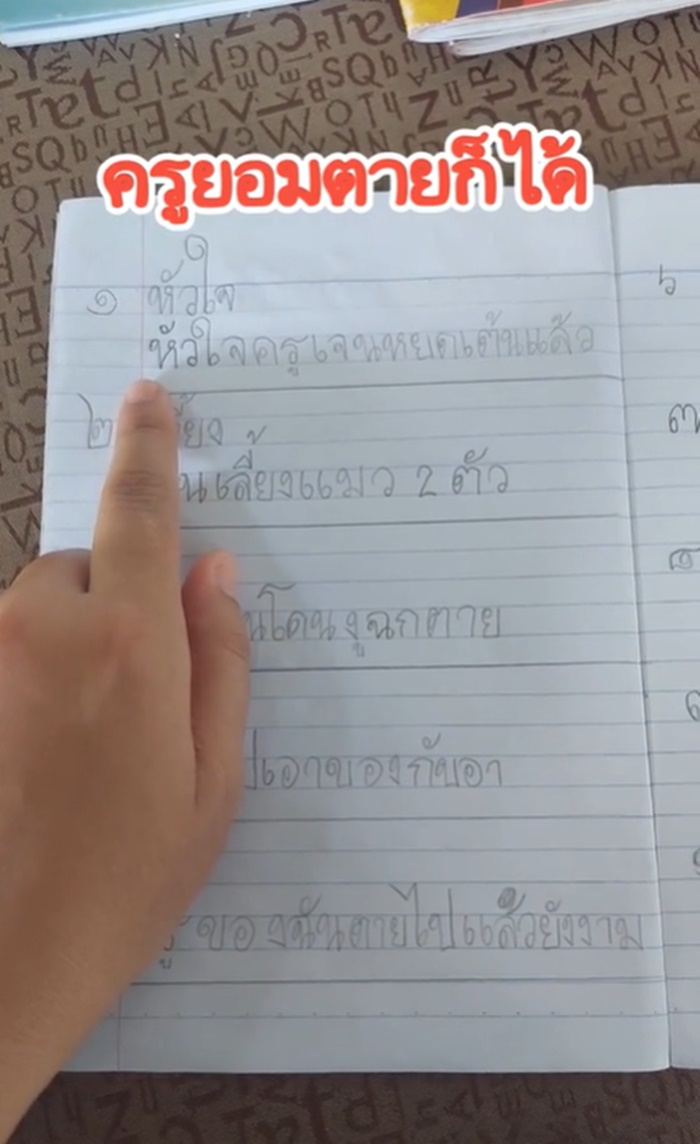 ครูยอมตายก็ได้
๑ หัวใจ
หัวใจครูเจนหยุดเต้นแล้ว
๒
นเลี้ยงแมว 2 ตัว
นโดนงูฉกตาย
ปเอาของกับอา
ของฉันตายไปแล้วยังงาม
๖
๗
๘